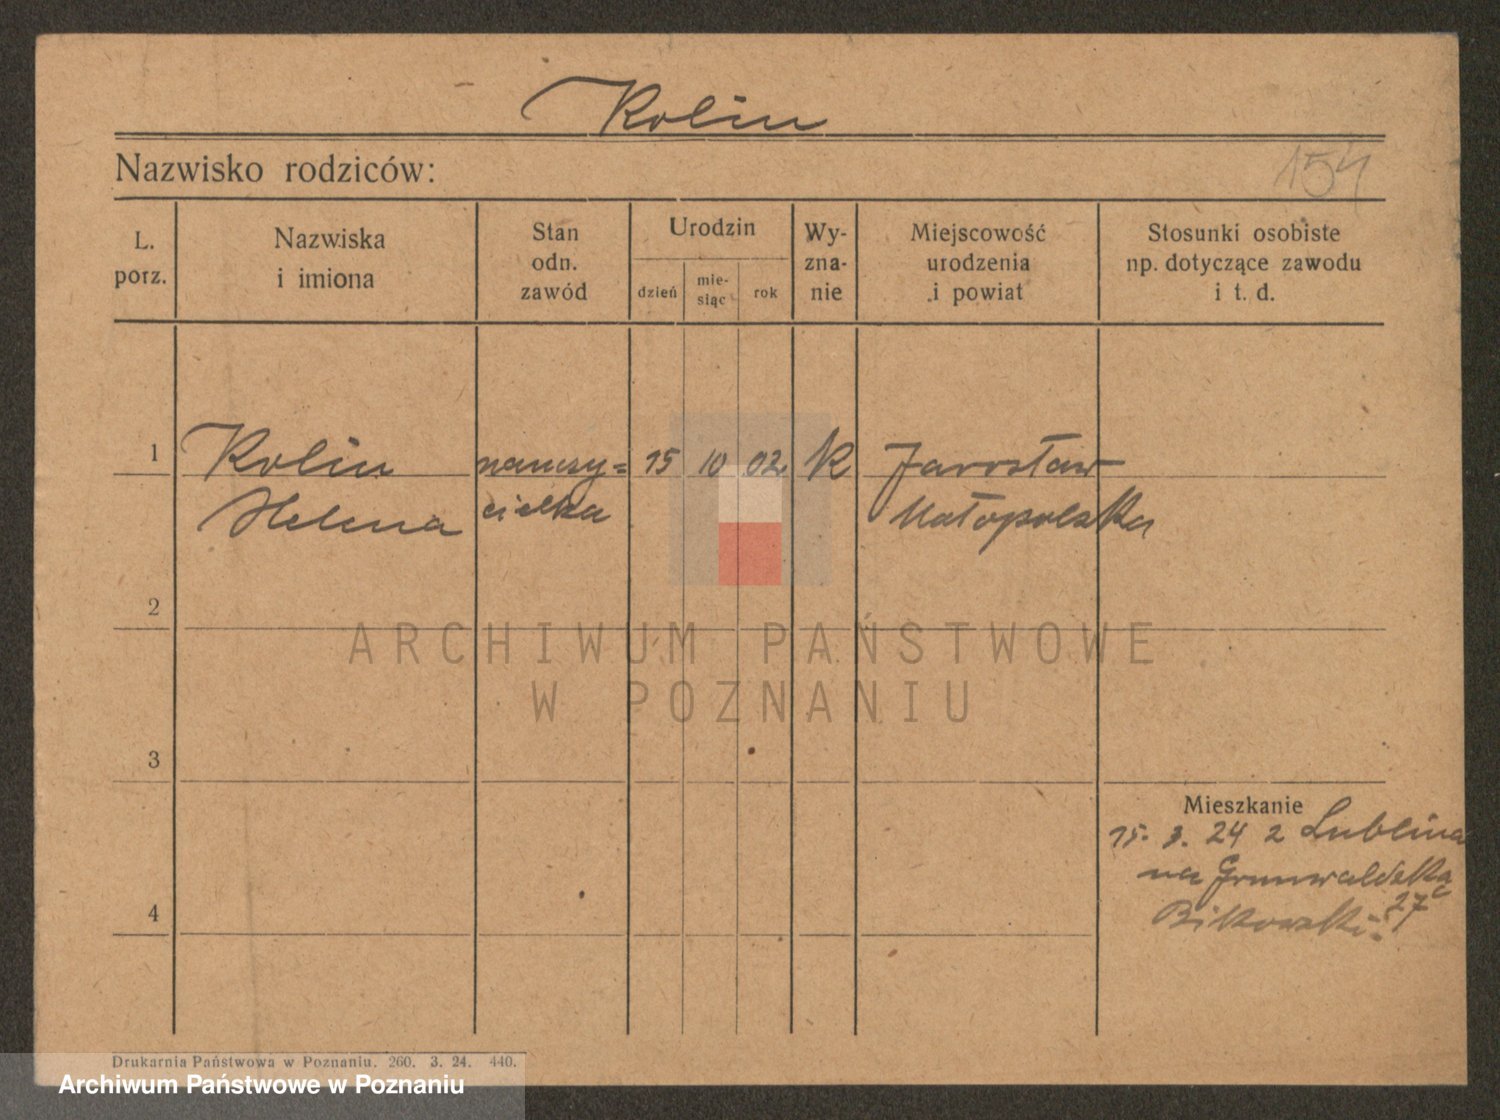 Kolin
Nazwisko rodziców:
154
L. porz.
Nazwiska i imiona
Stan odn. zawód
Urodzin
dzień
mie-siąc
rok
Wy-zna-nie
Miejscowość urodzenia i powiat
Stosunki osobiste np. dotyczące zawodu i t. d.
1 Kolin nauczy= 15 10 02 K Jarosław
Helena cielka Małopolska
2
ARCHIWUM PAŃSTWOWE
W POZNANIU
3
Mieszkanie
15. 3. 24 z Lublina
na Grunwaldzką
27
4
Drukarnia Państwowa w Poznaniu. 260. 3. 24. 440.
Archiwum Państwowe w Poznaniu